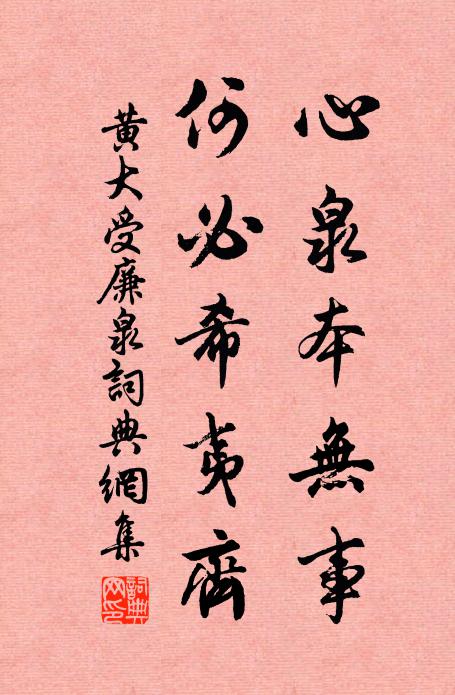 心泉本無事
何必希夷齊
黃大受廉泉詞典網集
詞典網印